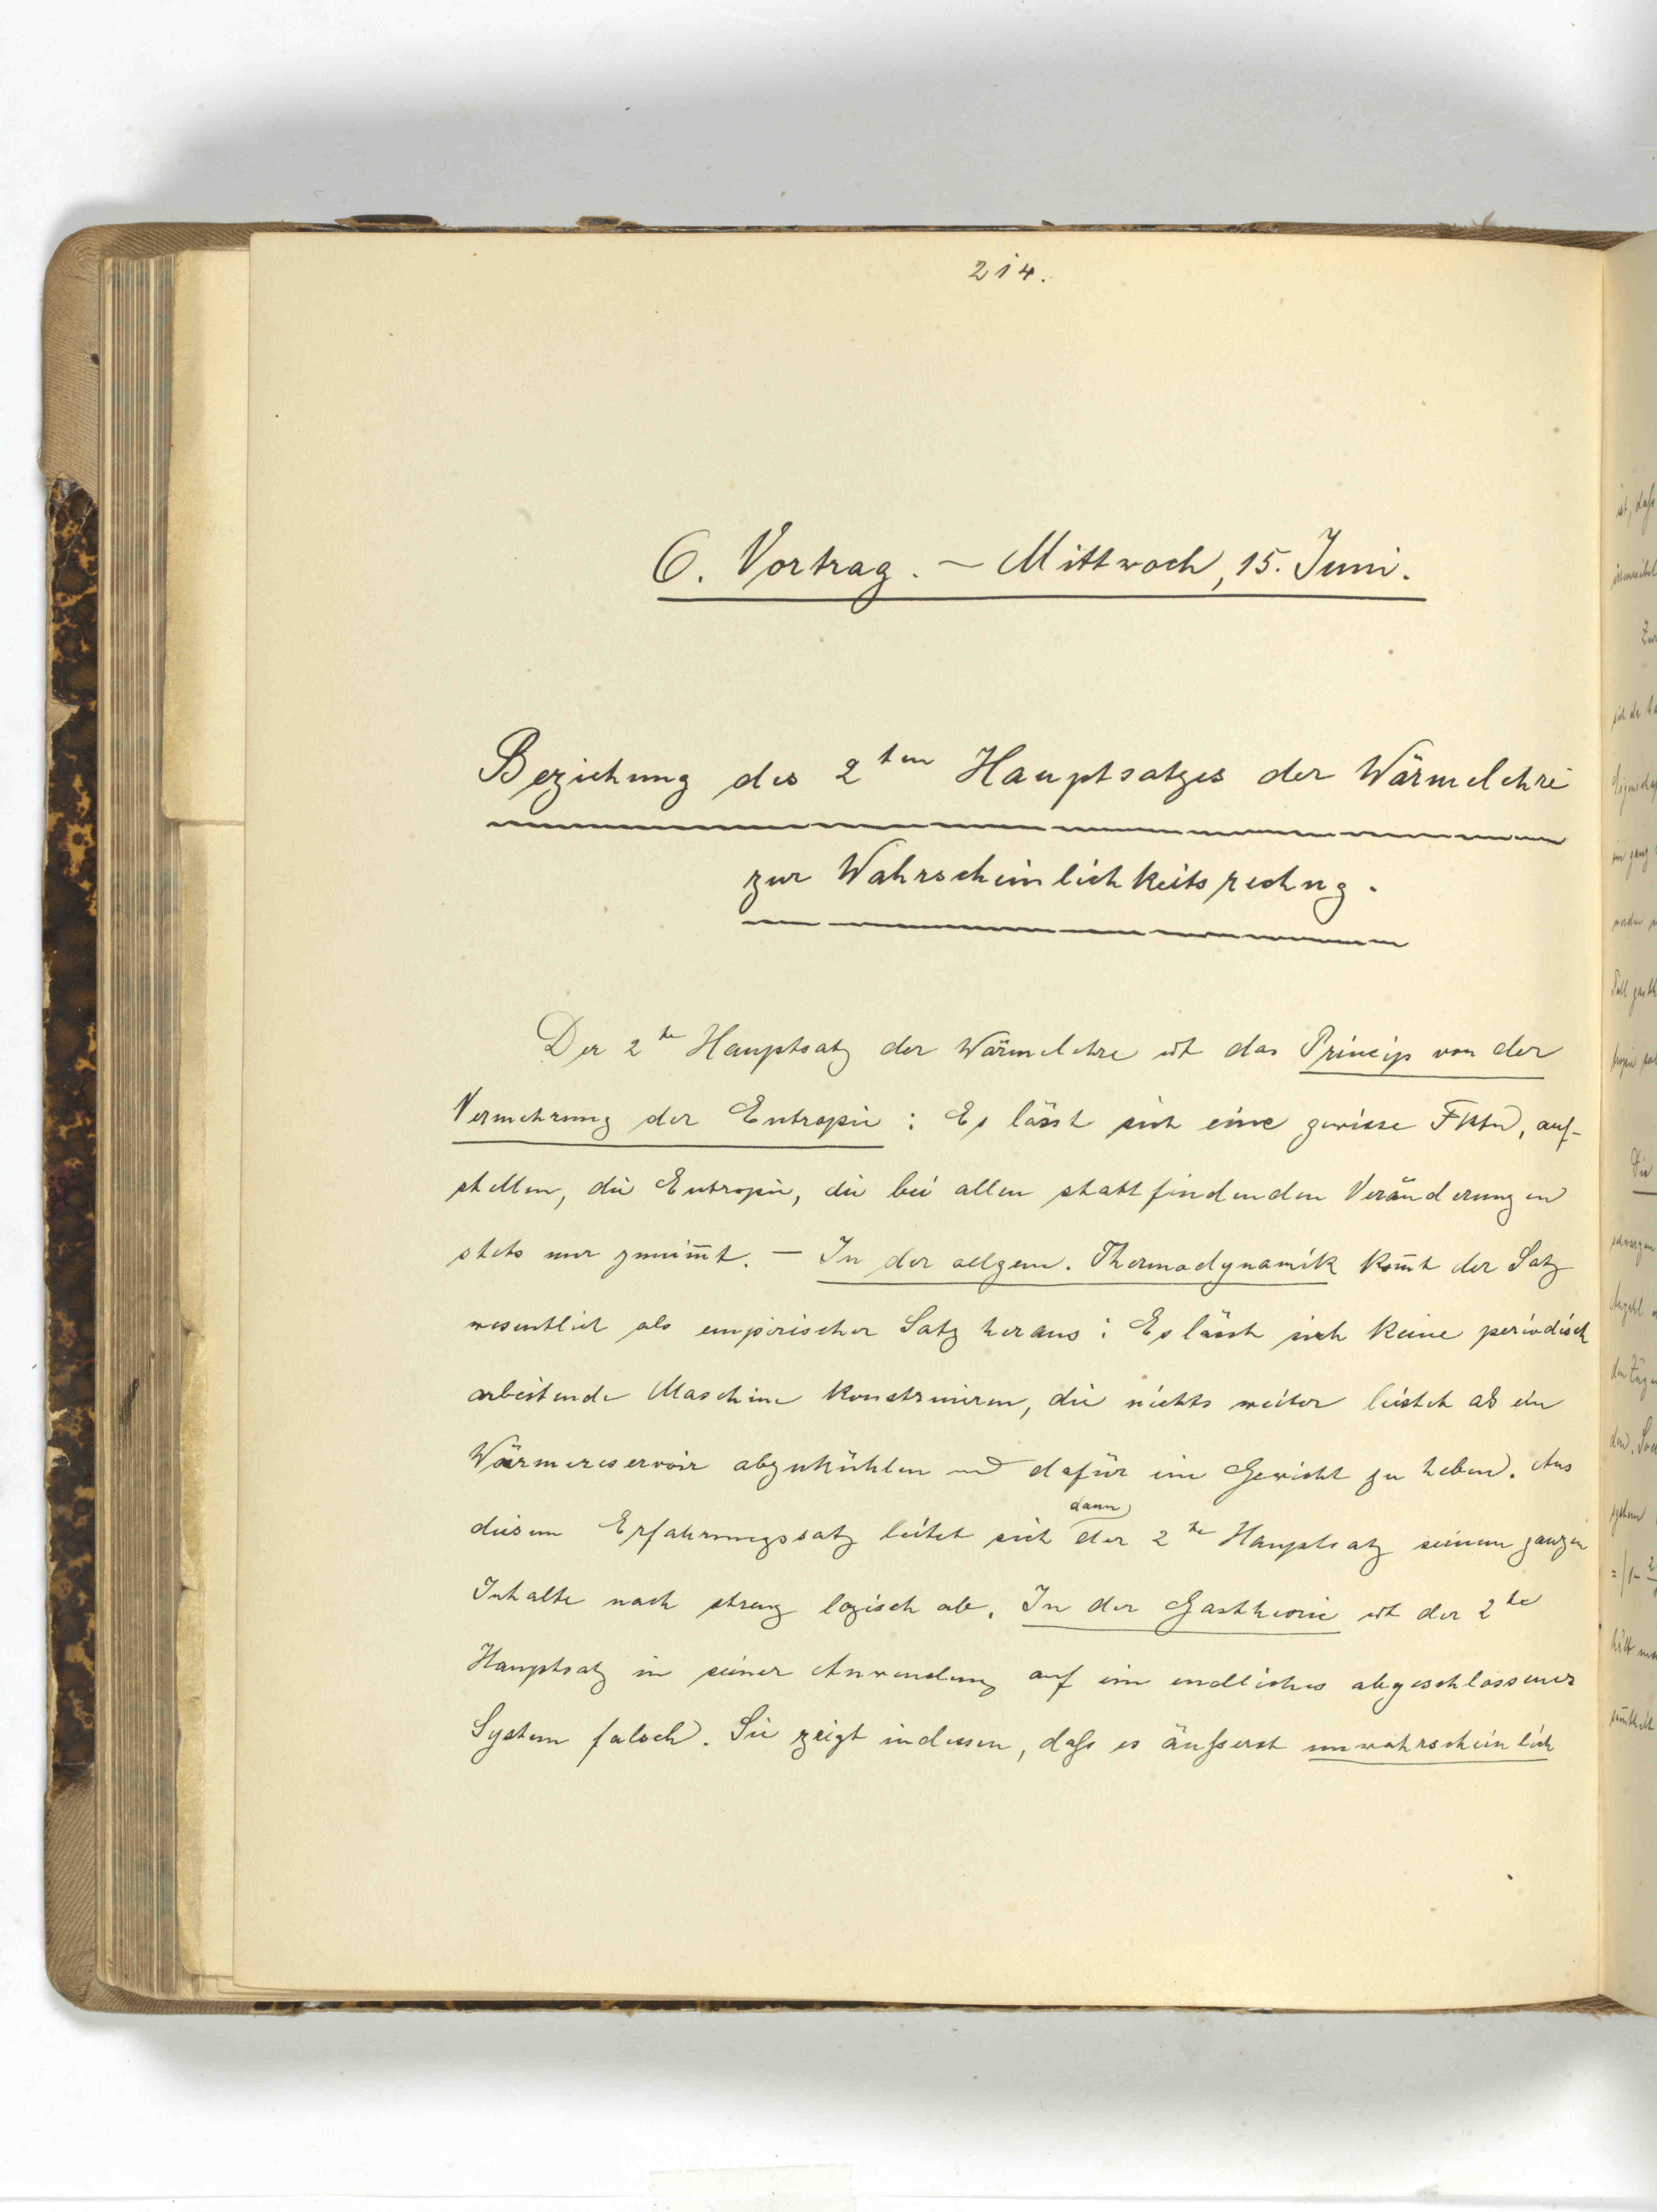 214.
6. Vortrag. – Mittwoch, 15. Juni.
Beziehung des 2ten Hauptsatzes der Wärmelehre
zur Wahrscheinlichkeitsrechng.
Der 2te Hauptsatz der Wärmelehre ist das Princip von der
Vermehrung der Entropie: Es lässt sich eine gewisse Fktn, auf-
stellen, die Entropie, die bei allen stattfindenden Veränderungen
stets nur zunim̅t. – In der allgem. Thermodynamik kom̅t der Satz
wesentlich als empirischer Satz heraus: Es lässt sich keine periodisch
arbeitende Maschine konstruieren, die nichts weiter leistet als ein
Wärmereservoir abzukühlen und dafür ein Gewicht zu heben. Aus
diesem Erfahrungssatz leitet sich dann der 2te Hauptsatz seinem ganzen
Inhalte nach streng logisch ab. In der Gastheorie ist der 2te
Hauptsatz in seiner Anwendung auf ein endliches abgeschlossenes
System falsch. Sie zeigt indessen, daß es äußerst unwahrscheinlich